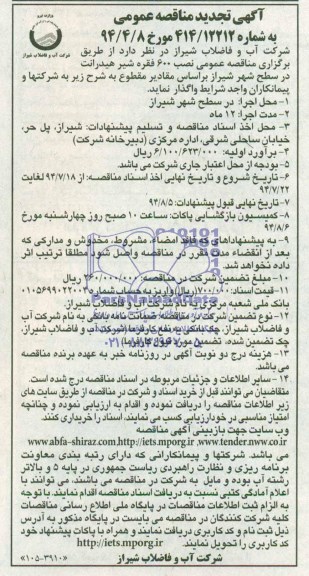 آگهی تجدید مناقصه عمومی
به شماره ۴۱۴/۱۲۲۱۲ مورخ ۹۴/۴/۸
شرکت آب و فاضلاب شیراز
شرکت آب و فاضلاب شیراز در نظر دارد از طریق
برگزاری مناقصه عمومی نصب ۶۰۰ فقره شیر هیدرانت
در سطح شهر شیراز براساس مقادیر مقطوع به شرح زیر به شرکتها و
پیمانکاران واجد شرایط واگذار نماید.
۱- محل اجرا: در سطح شهر شیراز
۲- مدت اجرا: ۱۲ ماه
۳- محل اخذ اسناد مناقصه و تسلیم پیشنهادات: شیراز، پل حر،
خیابان ساحلی شرقی، اداره مرکزی (دبیرخانه شرکت)
۴- برآورد اولیه: ۶/۱۰۰/۶۲۳/۰۰۰ ریال
۵- بودجه از محل اعتبار جاری شرکت می باشد.
۶- تاریخ شروع و تاریخ نهایی اخذ اسناد مناقصه: از ۹۴/۷/۱۸ لغایت
۹۴/۷/۲۲
۷- تاریخ نهایی قبول پیشنهادات: ۹۴/۸/۵
۸- کمیسیون بازگشایی پاکات: ساعت ۱۰ صبح روز چهارشنبه مورخ
۹۴/۸/۶
۹- به پیشنهادهای که فاقد امضاء، مشروط، مخدوش و مدارکی که
بعد از انقضاء مدت مقرر در مناقصه واصل شود مطلقا ترتیب اثر
داده نخواهد شد.
۱۰- مبلغ تضمین شرکت در مناقصه: ریال
۱۱- قیمت اسناد: ریال واریز به حساب شماره
بانک ملی شعبه مرکزی شیراز بنام شرکت آب و فاضلاب شیراز.
۱۲- نوع تضمین شرکت در مناقصه: ضمانت نامه بانکی به نام شرکت آب
و فاضلاب شیراز، چک بانکی به نفع کارفرما (شرکت آب و فاضلاب شیراز،
چک تضمین شده، تضمین مورد قبول کارفرما)
۱۳- هزینه درج دو نوبت آگهی در روزنامه خبر به عهده برنده مناقصه
می باشد.
۱۴- سایر اطلاعات و جزئیات مربوطه در اسناد مناقصه درج شده است.
متقاضیان می توانند قبل از خرید اسناد و شرکت در مناقصه از طریق سایت های
زیر اطلاعات مناقصه را دریافت نموده و اقدام به ارزیابی نموده و چنانچه
امتیاز مناسبی در خودارزیابی کسب می نمایند، اسناد را خریداری کنند.
وب سایت جهت بازبینی آگهی مناقصه
www.abfa-shiraz.com,http//iets.mporg.ir ,www.tender.nww.co.ir
می باشد. شرکتها و پیمانکارانی که دارای رتبه بندی معاونت
برنامه ریزی و نظارت راهبردی ریاست جمهوری در پایه ۵ و بالاتر
رشته آب بوده و مایل به شرکت در مناقصه می باشند، می توانند با
اعلام آمادگی کتبی نسبت به دریافت اسناد مناقصه اقدام نمایند. با توجه
به الزام ثبت اطلاعات مناقصات در پایگاه ملی اطلاع رسانی مناقصات
کلیه شرکت کنندگان در مناقصه می بایست در پایگاه مذکور به آدرس
ذیل ثبت نام و کد کاربری دریافت نمایند و همراه با پاکات پیشنهاد خود
کد کاربری را تحویل نمایند. http://iets.mporg.ir
شرکت آب و فاضلاب شیراز
«۱۰۵-۳۹۱۰»